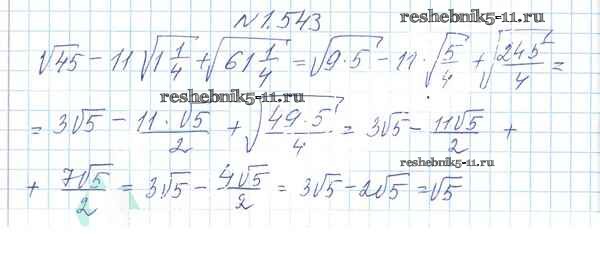 N 1.543
reshebnik5-11.ru
√45 − 11√(1 1/4) + √(61 1/4) = √(9·5) − 11·√(5/4) + √(245/4) =
reshebnik5-11.ru
= 3√5 − (11·√5)/2 + √((49·5)/4) = 3√5 − (11√5)/2 +
reshebnik5-11.ru
+ (7√5)/2 = 3√5 − (4√5)/2 = 3√5 − 2√5 = √5